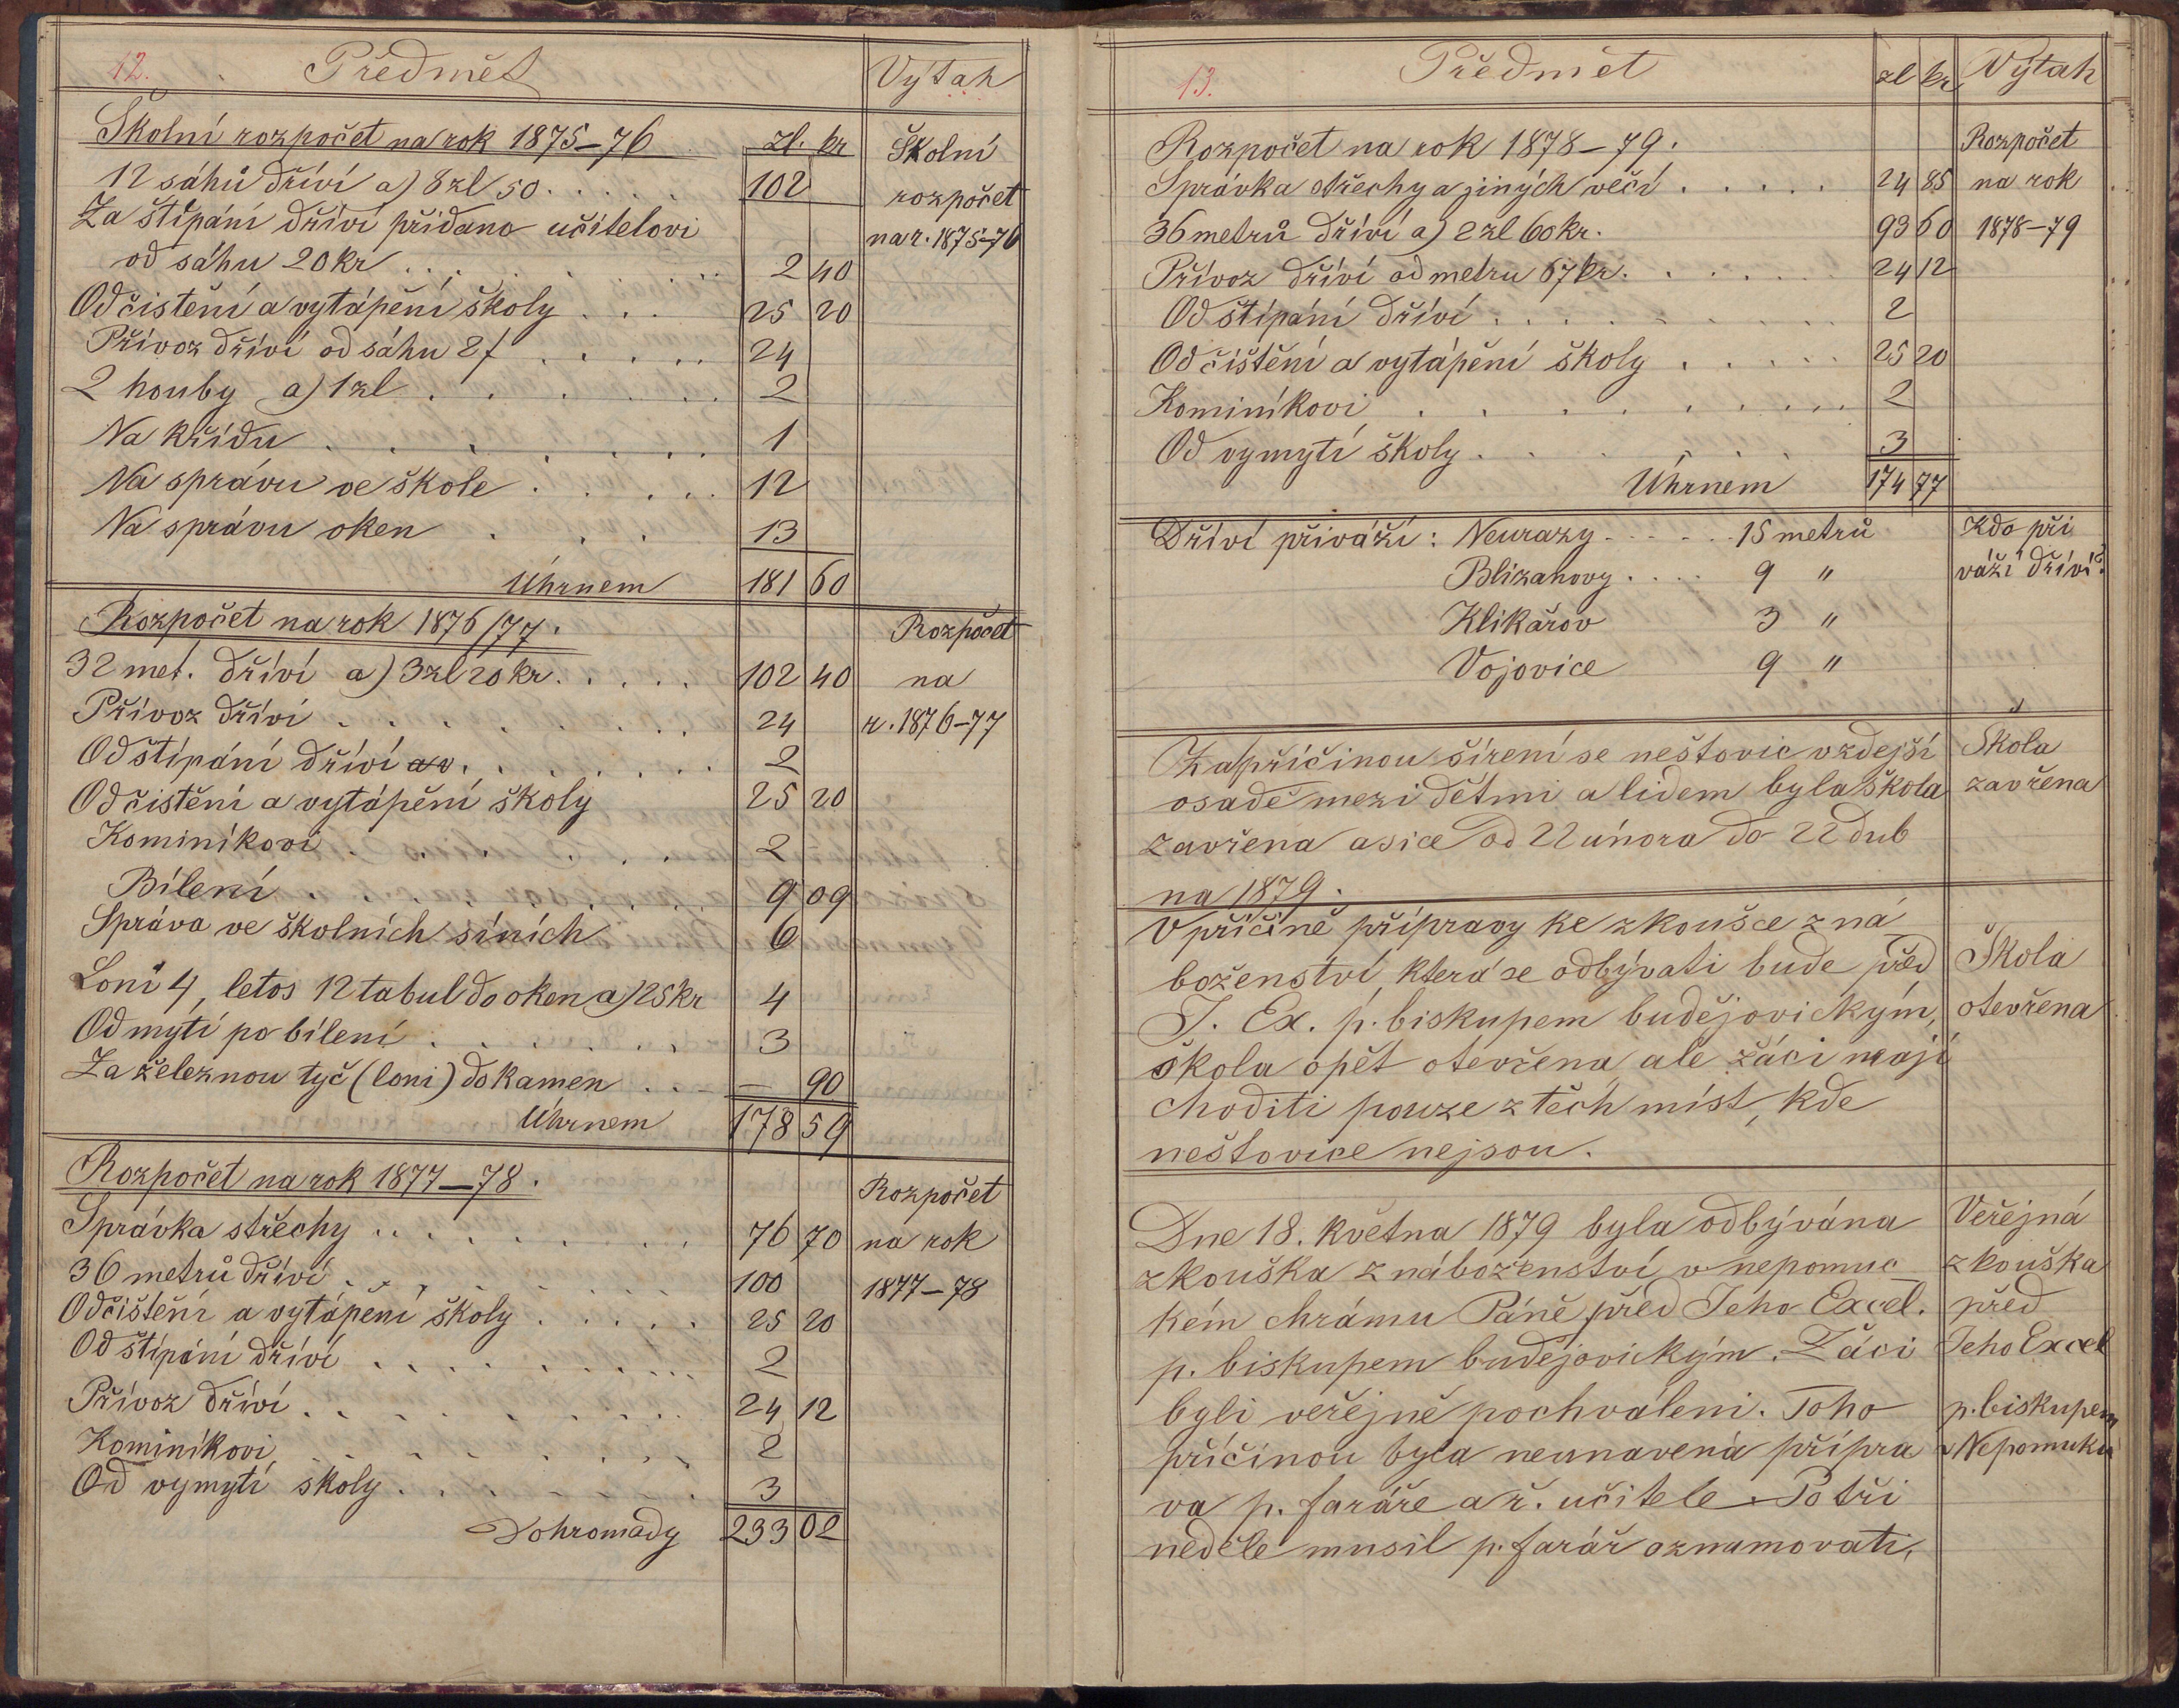 12. Předmět Výtah
Školní rozpočet na rok 1875–76 zl. kr Školní
12 sáhů dříví a) 8 zl 50 . . . . . 102 rozpočet
Za štípání dříví přidano učitelovi na r. 1875–76
od sáhu 20 kr . . . 2 40
Od čistění a vytápění školy . . . 25 20
Přívoz dříví od sáhu 2 f . . . . . 24
2 houby a) 1 zl . . . . . . 2
Na křídu . . . . . . . 1
Na správu ve škole . . . . . 12
Na správu oken . . . 13
Úhrnem 181 60
Rozpočet na rok 1876/77. Rozpočet
32 met. dříví a) 3 zl 20 kr. . . . . 102 40 na
Přívoz dříví . . . . . . . . 24 r. 1876–77
Od štípání dříví . . . . . . . 2
Od čistění a vytápění školy 25 20
Kominíkovi . . . . . . . 2 –
Bílení . . . . . . . 9 09
Správa ve školních síních 6
Loni 4, letos 12 tabul do oken a) 25 kr 4
Od mytí po bílení . . . . . . 3
Za železnou tyč (loni) do kamen . . – 90
Úhrnem 178 59
Rozpočet na rok 1877–78. Rozpočet
Správka střechy . . . . . . . . 76 70 na rok
36 metrů dříví . . . . . . . . 100 1877–78
Od čištění a vytápění školy . . . . . 25 20
Od štípání dříví . . . . . . . . . 2
Přívoz dříví . . . . . . . . . 24 12
Kominíkovi . . . . . . . . 2
Od vymytí školy . . . . . . . 3
Dohromady 233 02
13. Předmět zl kr Výtah
Rozpočet na rok 1878–79. Rozpočet
Správka střechy a jiných věcí . . . . . 24 85 na rok
36 metrů dříví a) 2 zl 60 kr. 93 60 1878–79
Přívoz dříví od metru 67 kr. . . . . . 24 12
Od štípání dříví . . . . . . . . . 2
Od čištění a vytápění školy . . . . . 25 20
Kominíkovi . . . . . . . . . 2
Od vymytí školy . . . . . . 3
Úhrnem 174 77
Dříví přiváží: Neurazy . . . . . . 15 metrů Kdo při
Blizanovy . . . . 9 " váží dříví?
Klikařov 3 "
Vojovice 9 "
Za příčinou šírení se neštovic vzdejší Škola
osadě mezi dětmi a lidem byla škola zavřena
zavřena a sice od 22 února do 22 dub
na 1879.
V příčině přípravy ke zkoušce z ná
boženství, která se odbývati bude před Škola
J. Ex. p. biskupem budějovickým, otevřena
škola opět otevřena ale žáci mají
choditi pouze z těch míst, kde
neštovice nejsou.
Dne 18. května 1879 byla odbývána Veřejná
zkouška z náboženství v nepomuc zkouška
kém chrámu Páně před Jeho Excel. před
p. biskupem budějovickým. Žáci Jeho Excel
byli veřejně pochváleni. Toho p. biskupem
příčinou byla neunavená přípra v Nepomuku
va p. faráře a ř. učitele. Po tři
neděle musil p. farář oznamovati,